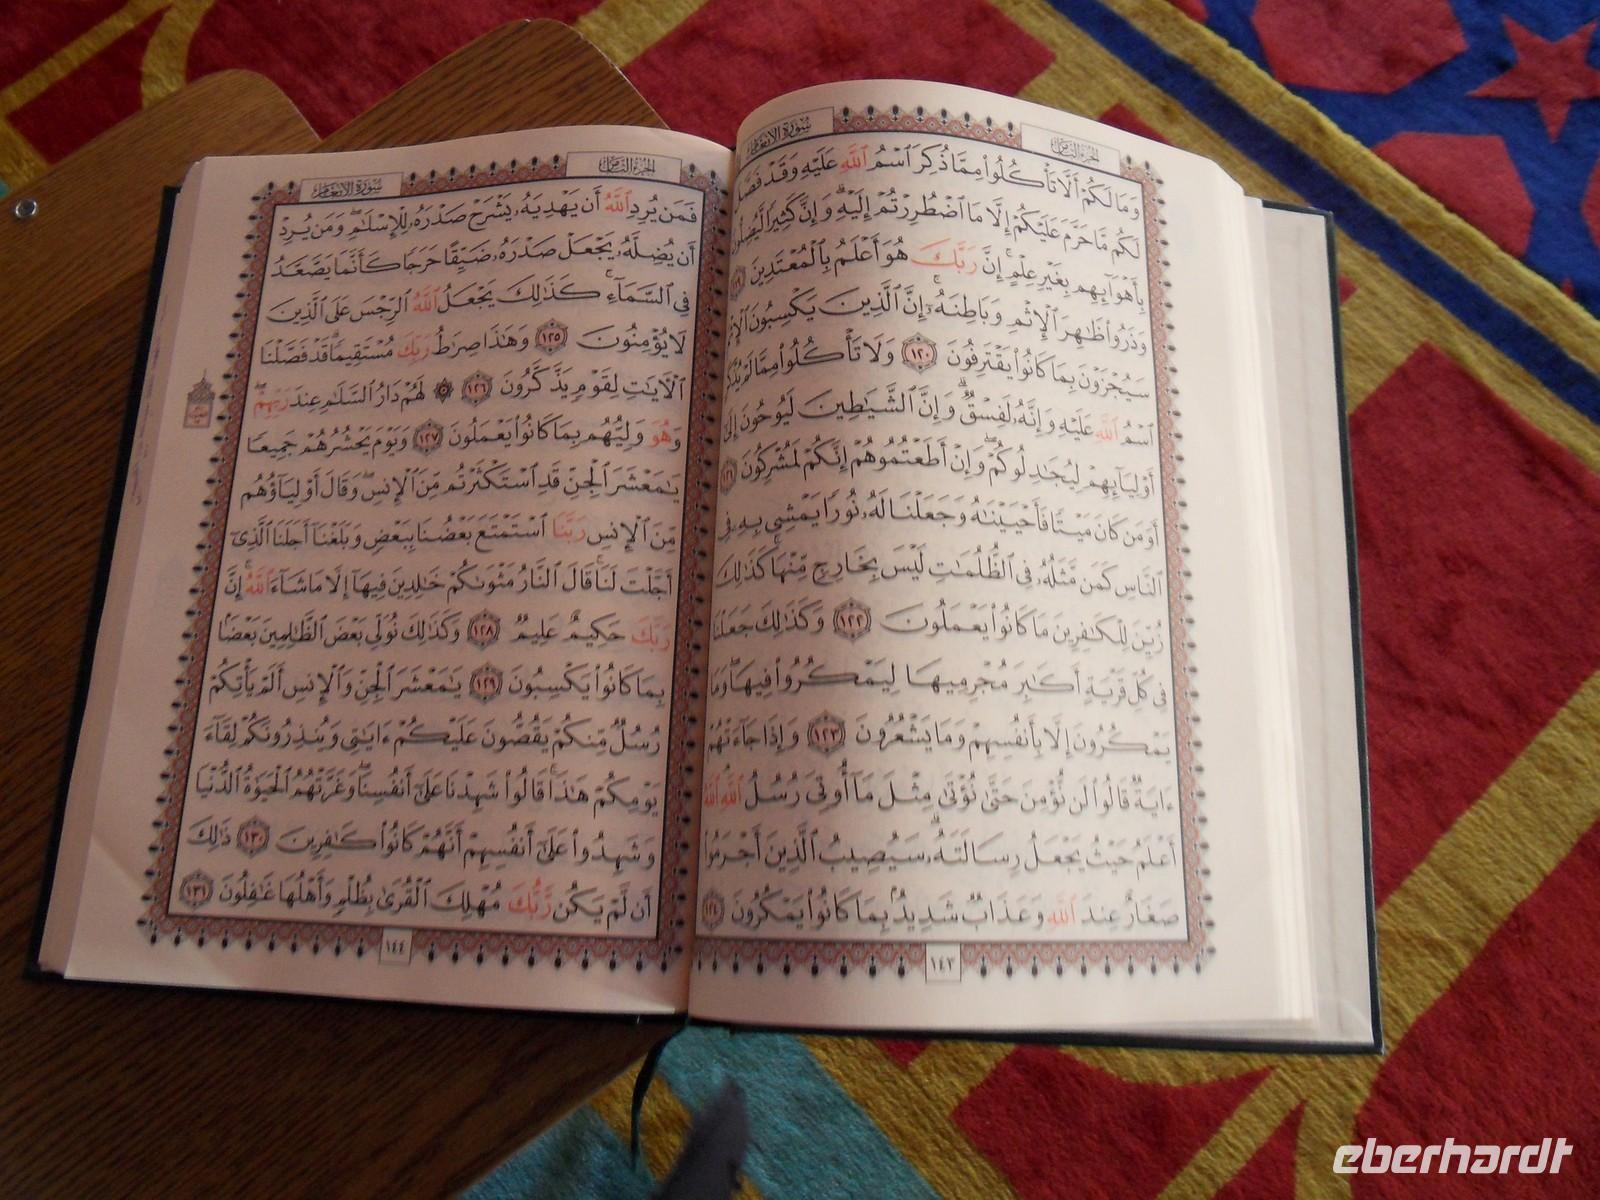 سورة الأنعام
الجزء الثامن
وَمَا لَكُمْ أَلَّا تَأْكُلُوا۟ مِمَّا ذُكِرَ ٱسْمُ ٱللَّهِ عَلَيْهِ وَقَدْ فَصَّلَ
لَكُم مَّا حَرَّمَ عَلَيْكُمْ إِلَّا مَا ٱضْطُرِرْتُمْ إِلَيْهِ ۗ وَإِنَّ كَثِيرًا لَّيُضِلُّونَ
بِأَهْوَآئِهِم بِغَيْرِ عِلْمٍ ۗ إِنَّ رَبَّكَ هُوَ أَعْلَمُ بِٱلْمُعْتَدِينَ ١١٩
وَذَرُوا۟ ظَـٰهِرَ ٱلْإِثْمِ وَبَاطِنَهُۥٓ ۚ إِنَّ ٱلَّذِينَ يَكْسِبُونَ ٱلْإِثْمَ
سَيُجْزَوْنَ بِمَا كَانُوا۟ يَقْتَرِفُونَ ١٢٠ وَلَا تَأْكُلُوا۟ مِمَّا لَمْ يُذْكَرِ
ٱسْمُ ٱللَّهِ عَلَيْهِ وَإِنَّهُۥ لَفِسْقٌ ۗ وَإِنَّ ٱلشَّيَـٰطِينَ لَيُوحُونَ إِلَىٰٓ
أَوْلِيَآئِهِمْ لِيُجَـٰدِلُوكُمْ ۖ وَإِنْ أَطَعْتُمُوهُمْ إِنَّكُمْ لَمُشْرِكُونَ ١٢١
أَوَمَن كَانَ مَيْتًا فَأَحْيَيْنَـٰهُ وَجَعَلْنَا لَهُۥ نُورًا يَمْشِى بِهِۦ فِى
ٱلنَّاسِ كَمَن مَّثَلُهُۥ فِى ٱلظُّلُمَـٰتِ لَيْسَ بِخَارِجٍ مِّنْهَا ۚ كَذَٰلِكَ
زُيِّنَ لِلْكَـٰفِرِينَ مَا كَانُوا۟ يَعْمَلُونَ ١٢٢ وَكَذَٰلِكَ جَعَلْنَا
فِى كُلِّ قَرْيَةٍ أَكَـٰبِرَ مُجْرِمِيهَا لِيَمْكُرُوا۟ فِيهَا ۖ وَمَا
يَمْكُرُونَ إِلَّا بِأَنفُسِهِمْ وَمَا يَشْعُرُونَ ١٢٣ وَإِذَا جَآءَتْهُمْ
ءَايَةٌ قَالُوا۟ لَن نُّؤْمِنَ حَتَّىٰ نُؤْتَىٰ مِثْلَ مَآ أُوتِىَ رُسُلُ ٱللَّهِ ۘ ٱللَّهُ
أَعْلَمُ حَيْثُ يَجْعَلُ رِسَالَتَهُۥ ۗ سَيُصِيبُ ٱلَّذِينَ أَجْرَمُوا۟
صَغَارٌ عِندَ ٱللَّهِ وَعَذَابٌ شَدِيدٌۢ بِمَا كَانُوا۟ يَمْكُرُونَ ١٢٤
١٤٣
سورة الأنعام
الجزء الثامن
فَمَن يُرِدِ ٱللَّهُ أَن يَهْدِيَهُۥ يَشْرَحْ صَدْرَهُۥ لِلْإِسْلَـٰمِ ۖ وَمَن يُرِدْ
أَن يُضِلَّهُۥ يَجْعَلْ صَدْرَهُۥ ضَيِّقًا حَرَجًا كَأَنَّمَا يَصَّعَّدُ
فِى ٱلسَّمَآءِ ۚ كَذَٰلِكَ يَجْعَلُ ٱللَّهُ ٱلرِّجْسَ عَلَى ٱلَّذِينَ
لَا يُؤْمِنُونَ ١٢٥ وَهَـٰذَا صِرَٰطُ رَبِّكَ مُسْتَقِيمًا ۗ قَدْ فَصَّلْنَا
ٱلْـَٔايَـٰتِ لِقَوْمٍ يَذَّكَّرُونَ ١٢٦ ۞ لَهُمْ دَارُ ٱلسَّلَـٰمِ عِندَ رَبِّهِمْ ۖ
وَهُوَ وَلِيُّهُم بِمَا كَانُوا۟ يَعْمَلُونَ ١٢٧ وَيَوْمَ يَحْشُرُهُمْ جَمِيعًا
يَـٰمَعْشَرَ ٱلْجِنِّ قَدِ ٱسْتَكْثَرْتُم مِّنَ ٱلْإِنسِ ۖ وَقَالَ أَوْلِيَآؤُهُم
مِّنَ ٱلْإِنسِ رَبَّنَا ٱسْتَمْتَعَ بَعْضُنَا بِبَعْضٍ وَبَلَغْنَآ أَجَلَنَا ٱلَّذِىٓ
أَجَّلْتَ لَنَا ۚ قَالَ ٱلنَّارُ مَثْوَىٰكُمْ خَـٰلِدِينَ فِيهَآ إِلَّا مَا شَآءَ ٱللَّهُ ۗ إِنَّ
رَبَّكَ حَكِيمٌ عَلِيمٌ ١٢٨ وَكَذَٰلِكَ نُوَلِّى بَعْضَ ٱلظَّـٰلِمِينَ بَعْضًۢا
بِمَا كَانُوا۟ يَكْسِبُونَ ١٢٩ يَـٰمَعْشَرَ ٱلْجِنِّ وَٱلْإِنسِ أَلَمْ يَأْتِكُمْ
رُسُلٌ مِّنكُمْ يَقُصُّونَ عَلَيْكُمْ ءَايَـٰتِى وَيُنذِرُونَكُمْ لِقَآءَ
يَوْمِكُمْ هَـٰذَا ۚ قَالُوا۟ شَهِدْنَا عَلَىٰٓ أَنفُسِنَا ۖ وَغَرَّتْهُمُ ٱلْحَيَوٰةُ ٱلدُّنْيَا
وَشَهِدُوا۟ عَلَىٰٓ أَنفُسِهِمْ أَنَّهُمْ كَانُوا۟ كَـٰفِرِينَ ١٣٠ ذَٰلِكَ
أَن لَّمْ يَكُن رَّبُّكَ مُهْلِكَ ٱلْقُرَىٰ بِظُلْمٍ وَأَهْلُهَا غَـٰفِلُونَ ١٣١
١٤٤
eberhardt